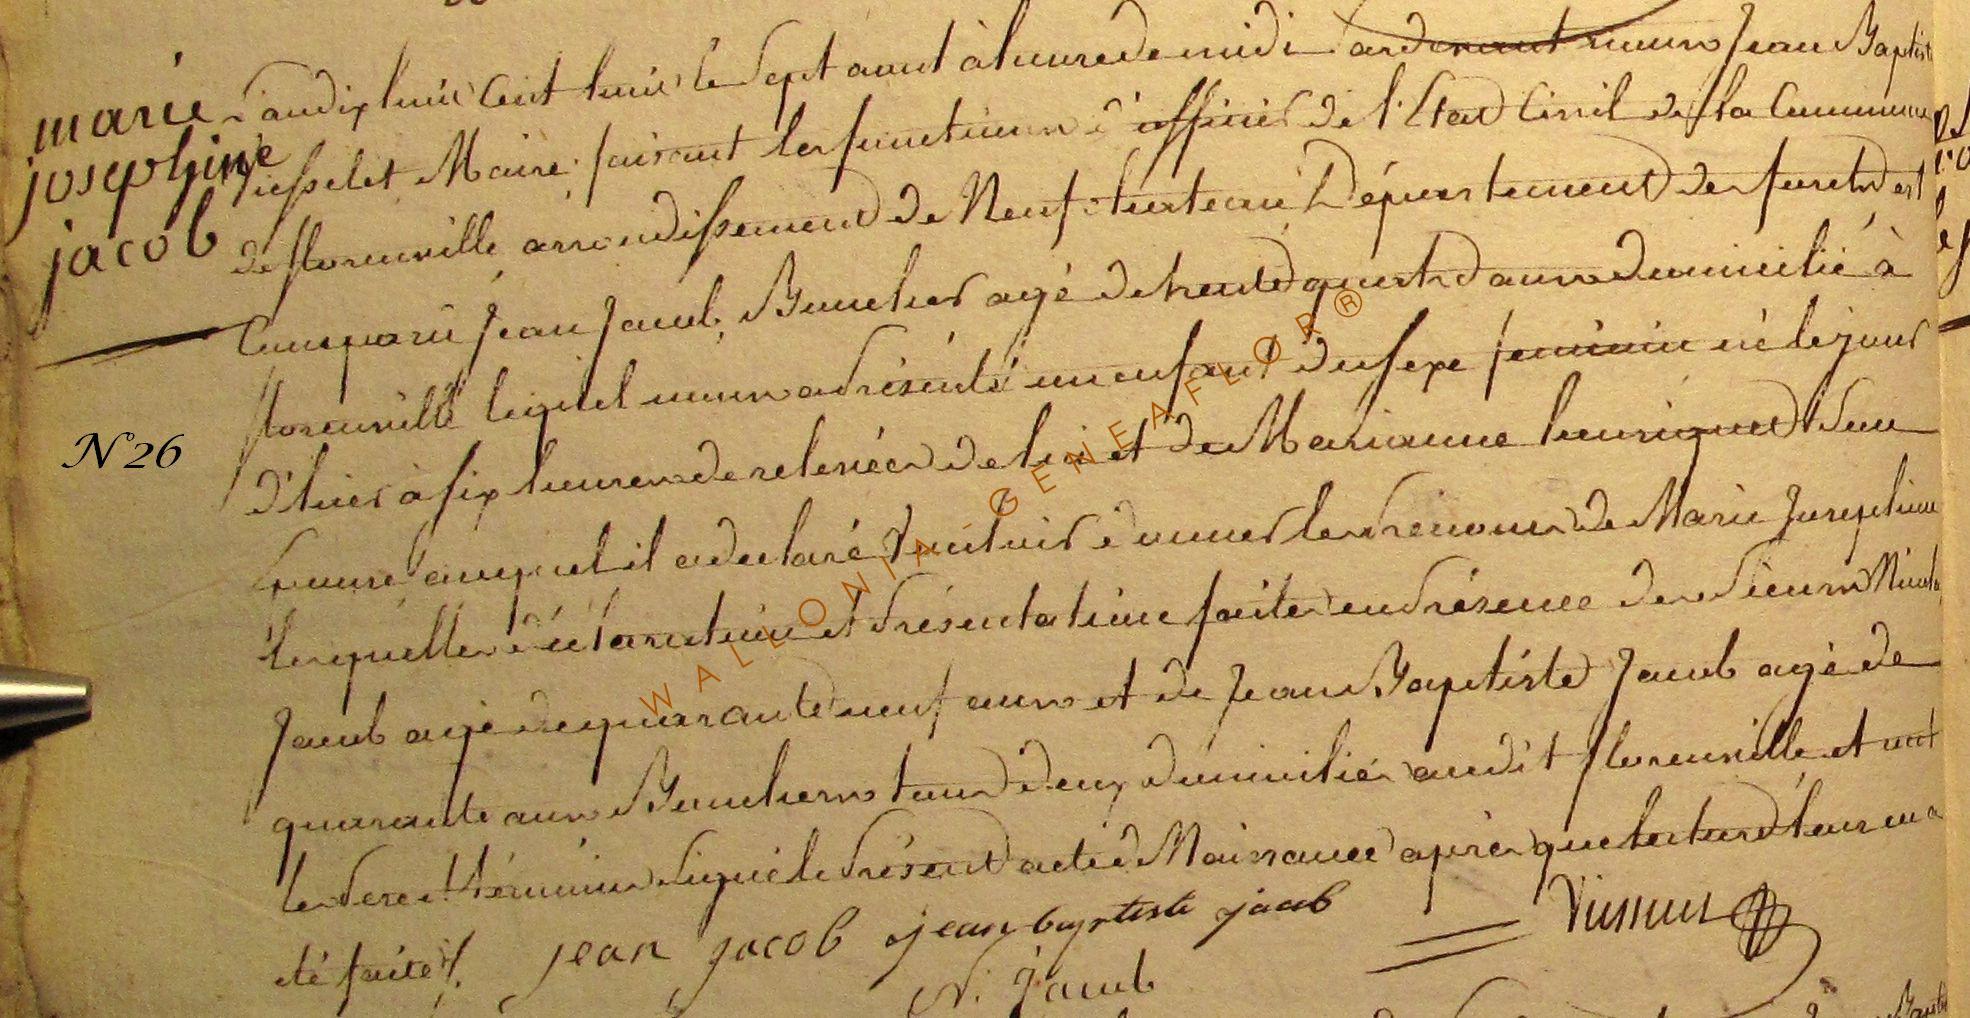 marie
josephine
jacob
N 26
L'an dix huit cent huit le sept aout à l'heure de midi pardevant nous Jean Baptiste
Maire faisant les fonctions d'officier de l'Etat Civil de la Commune
de florenville arrondissement de Neufchateau Département des forets est
Comparu Jean Jacob, Boucher agé de trente quatre ans domicilié à
florenville lequel nous a présenté un enfant du sexe feminin né le jour
d'hier à six heures de relevée de lui et de Marianne henriquet son
Epouse auquel il a declaré Vouloir donner les prenoms de Marie Josephine
lesquelles déclaration et présentation faites en présence des sieurs Nicolas
Jacob agé de quarante neuf ans et de Jean Baptiste Jacob agé de
quarante ans Bouchers tous deux domiciliés audit florenville et ont
les pere et témoins signé le présent acte de Naissance après que lecture leur en a
été faite /.
jean jacob jean baptiste jacob
N. Jacob
WALLONIA-GENEAFLOR®